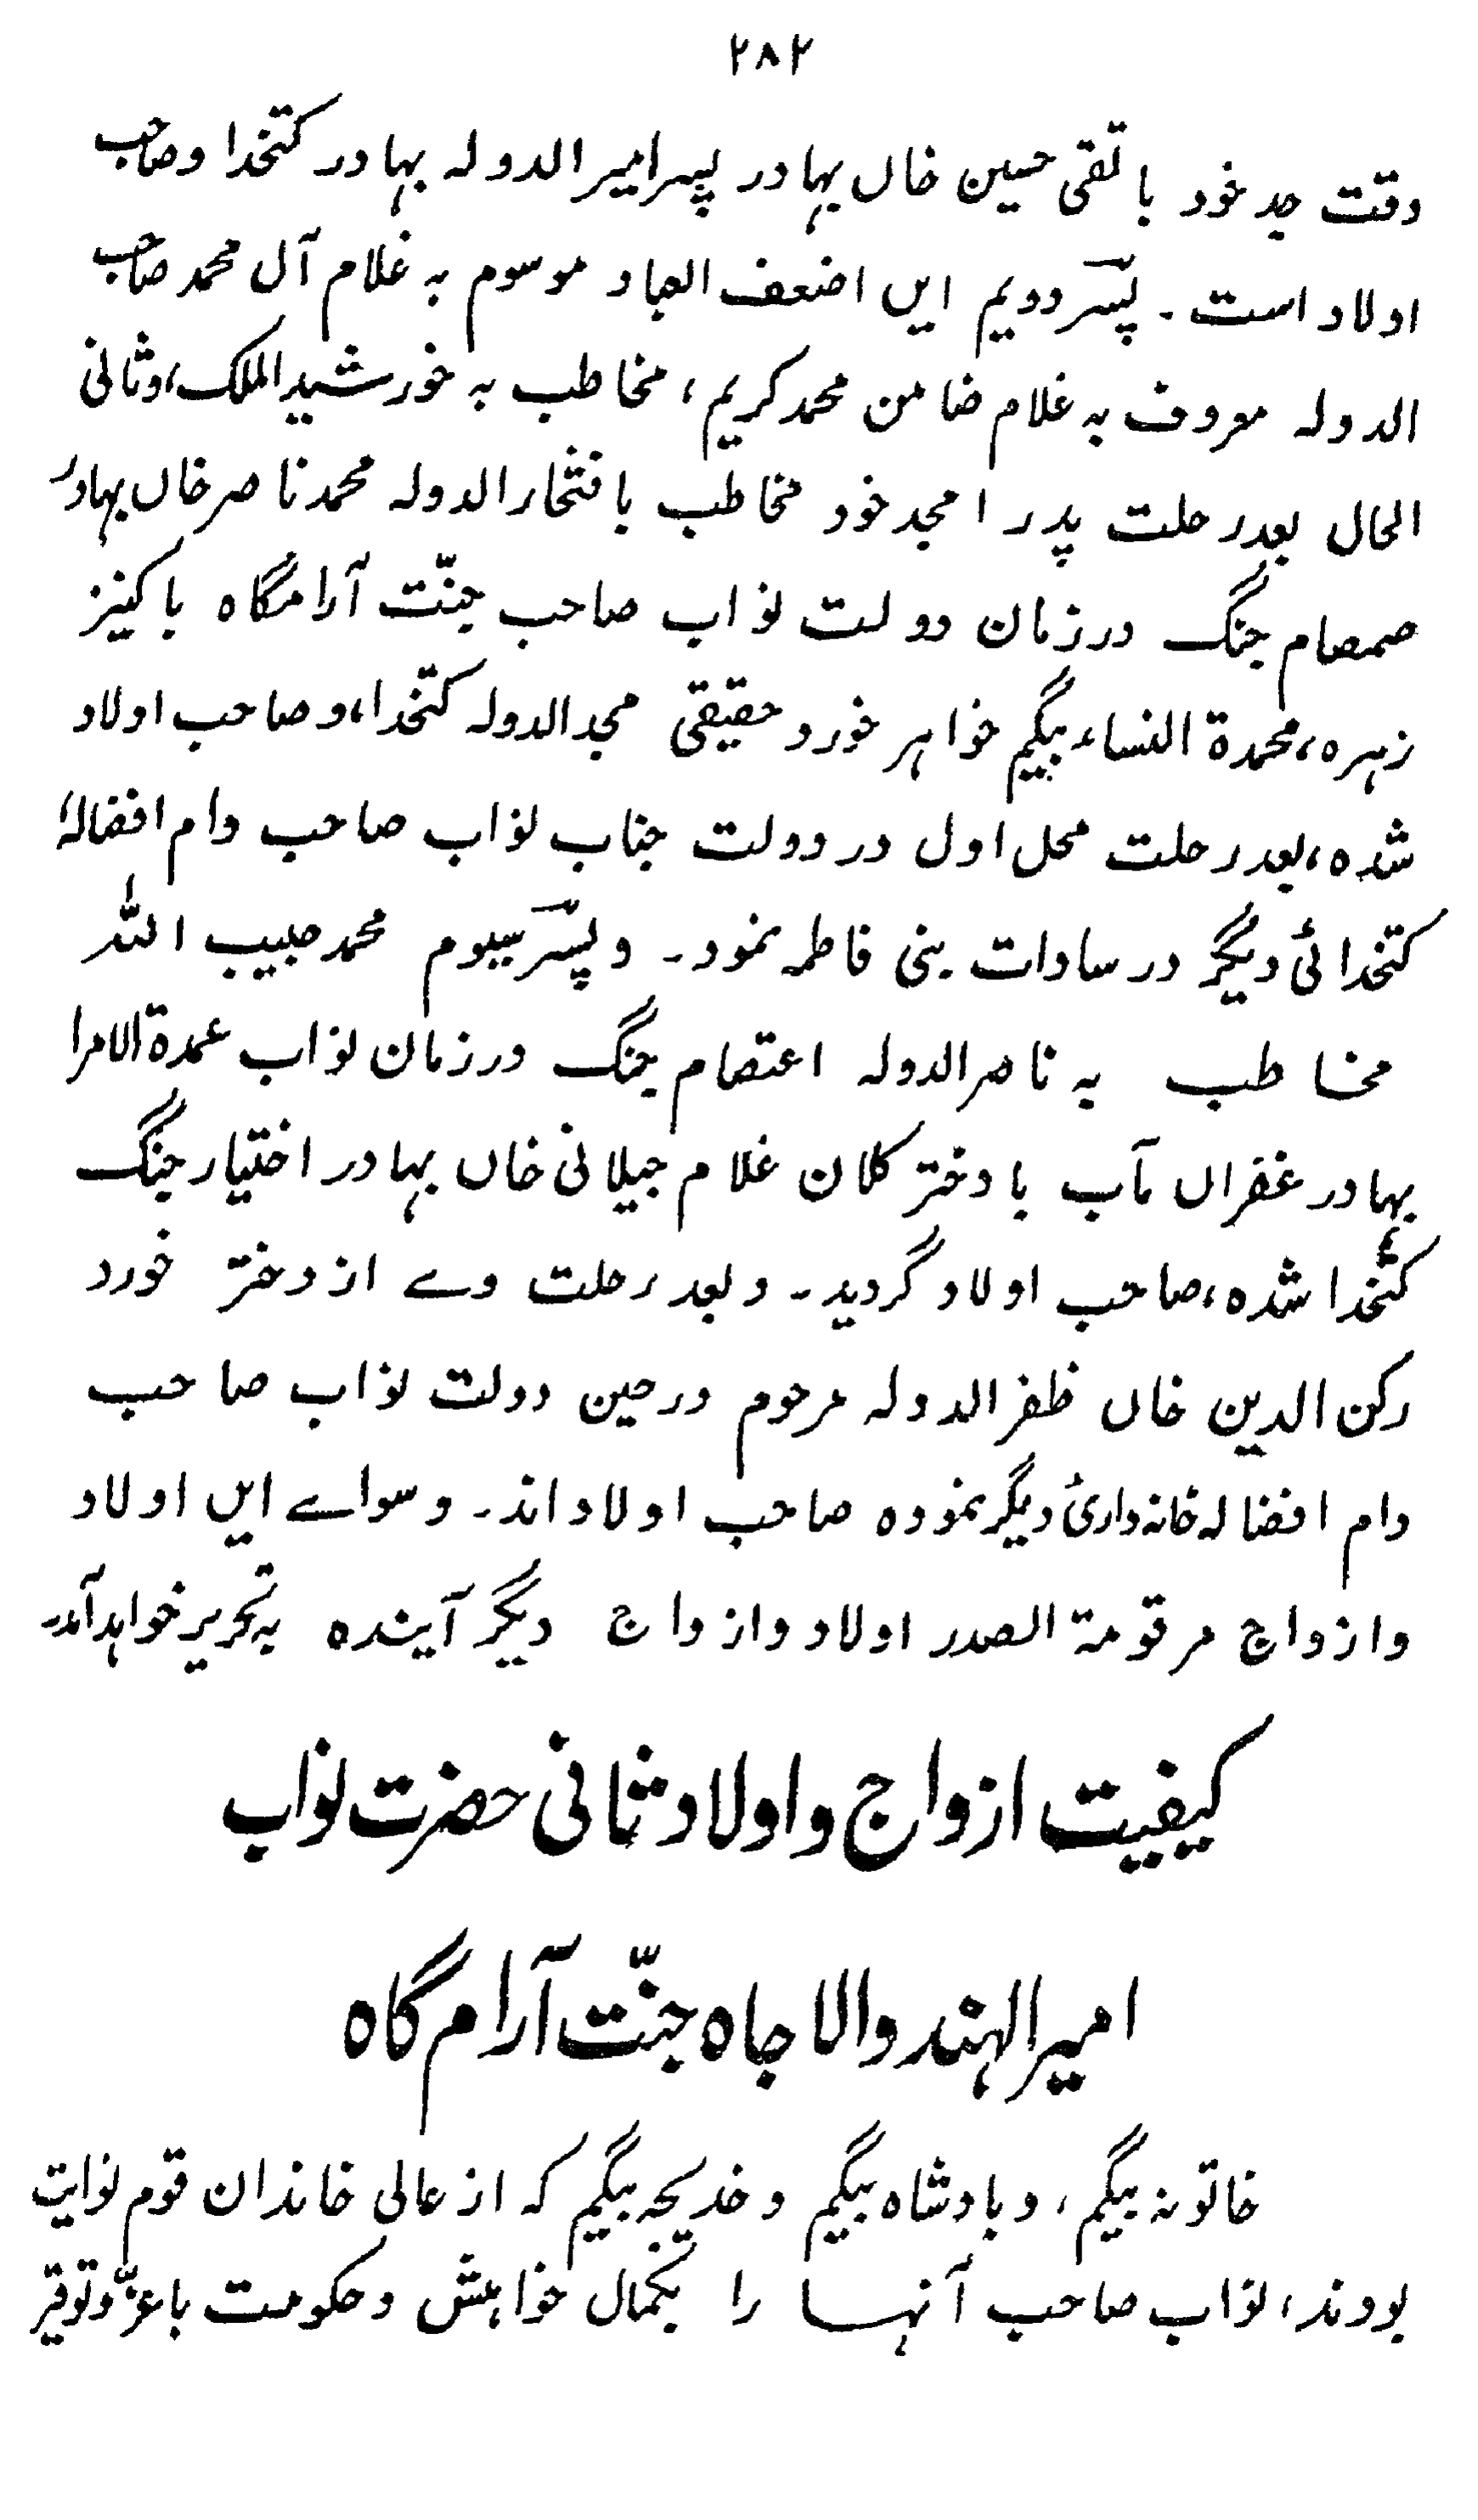 ۲۸۲
وقت جد خود با تقی حسین خاں بہادر پسر امیر الدولہ بہادر کتخدا و صاحب
اولاد است۔ پسر دویم ایں اضعف العباد موسوم بہ غلام آل محمد صاحب
الدولہ معروف بہ غلام ضامن محمد کریم، مخاطب بہ خورشید الملک، و ثانی
الحال بعد رحلت پدر امجد خود مخاطب بافتخار الدولہ محمد ناصر خاں بہادر
صمصام جنگ در زمان دولت نواب صاحب جنّت آرامگاہ با کنیز
زہرہ، محمدة النساء بیگم خواہر خورد حقیقی مجد الدولہ کتخدا، و صاحب اولاد
شدہ، بعد رحلت محل اول در دولت جناب نواب صاحب دام افضالہٗ
کتخدائی دیگر در سادات بنی فاطمہ نمود۔ و پسر سیوم محمد حبیب اللہ
مخاطب بہ ناصر الدولہ اعتصام جنگ در زمان نواب عمدة الامرا
بہادر غفراں مآب با دختر کلان غلام جیلانی خاں بہادر اختیار جنگ
کتخدا شدہ، صاحب اولاد گردید۔ و بعد رحلت وے از دختر خورد
رکن الدین خاں ظفر الدولہ مرحوم در حین دولت نواب صاحب
دام افضالہ خانہ داریٔ دیگر نمودہ صاحب اولاد اند۔ و سواے ایں اولاد
و ازواج مرقومة الصدر اولاد و ازواج دیگر آیندہ بہ تحریر خواہد آمد۔
کیفیت ازواج و اولاد ثانی حضرت نواب
امیر الہند والا جاہ جنّت آرام گاہ
خاتونہ بیگم، و بادشاہ بیگم و خدیجہ بیگم کہ از عالی خاندان قوم نوایت
بودند، نواب صاحب آنہا را بکمال خواہش و حکومت با عزّ و توقیر